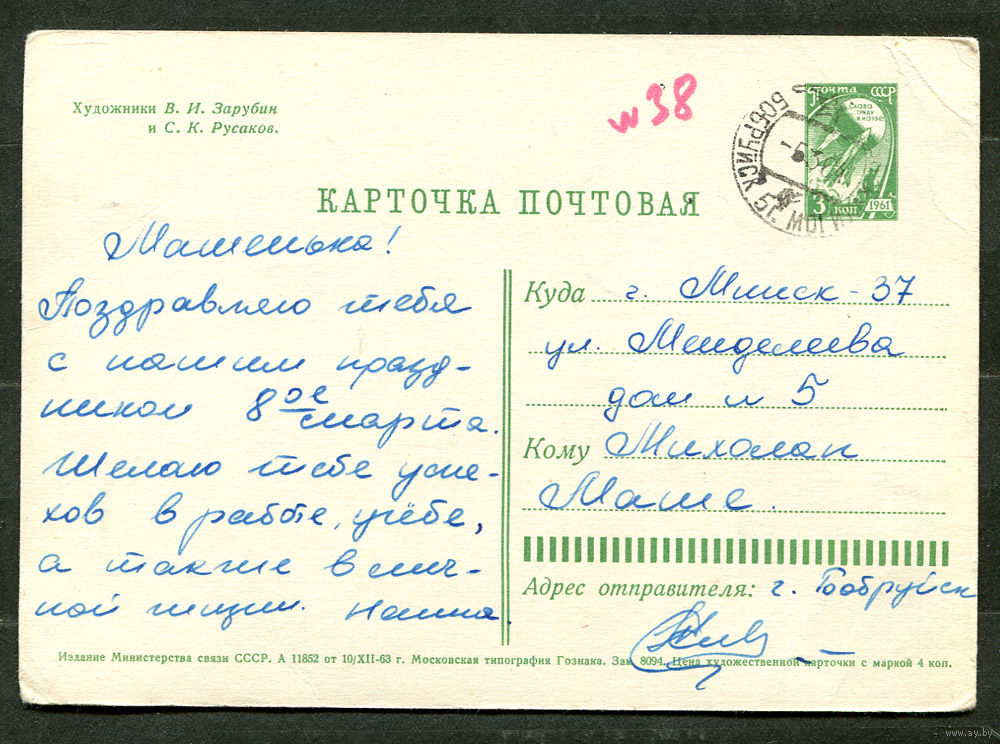 Художники В. И. Зарубин
и С. К. Русаков.
№ 38
Почта СССР
слава
труду
и науке
3 коп
1961
БОБРУЙСК
КАРТОЧКА ПОЧТОВАЯ
Машенька!
Поздравляю тебя
с нашим празд-
ником 8ое
марта.
Желаю тебе успе-
хов в работе, учёбе,
а также в лич-
ной жизни.
Куда г. Минск-37
ул. Менделеева
дом № 5
Кому Михолап
Маше.
Адрес отправителя: г. Бобруйск
Издание Министерства связи СССР. А 11852 от 10/XII-63 г. Московская типография Гознака. Зак. 8094. Цена художественной карточки с маркой 4 коп.
www.ay.by